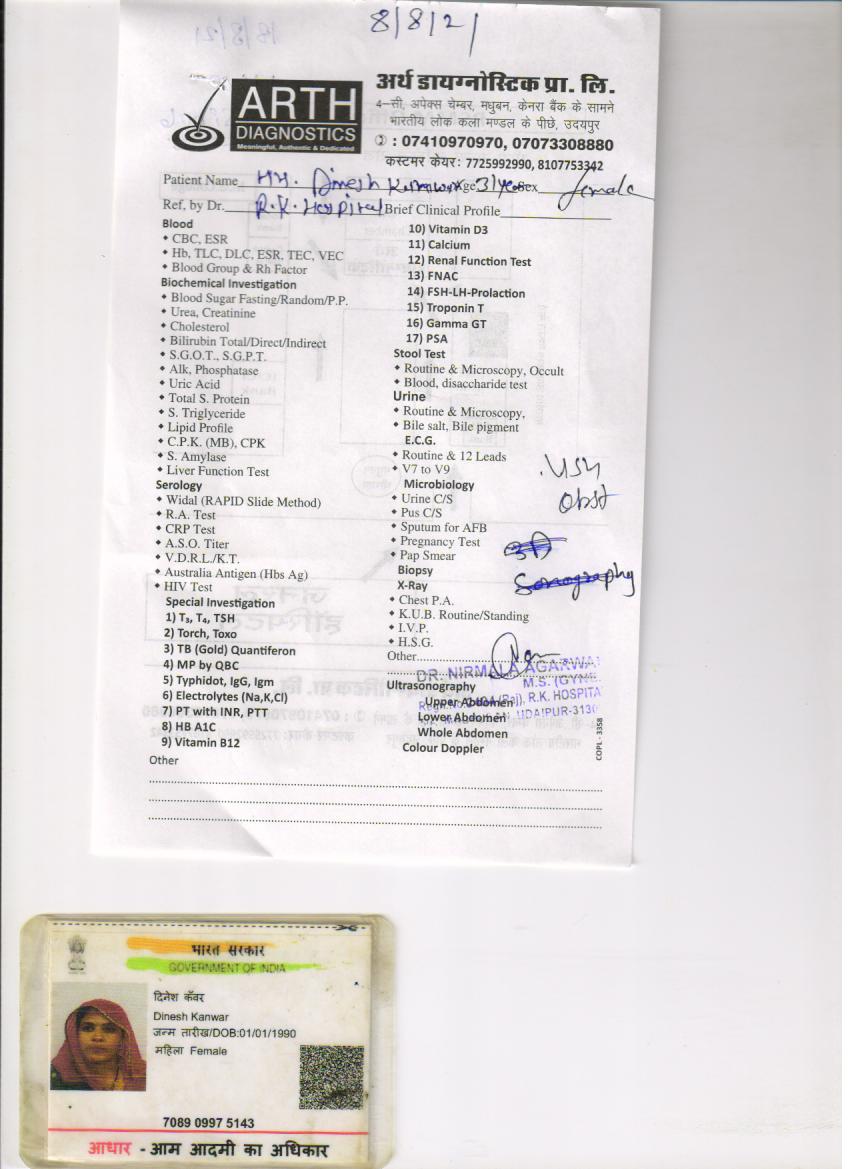 8/8/21
ARTH
DIAGNOSTICS
Meaningful, Authentic & Dedicated
अर्थ डायग्नोस्टिक प्रा. लि.
4–सी, अपेक्स चेम्बर, मधुबन, केनरा बैंक के सामने
भारतीय लोक कला मण्डल के पीछे, उदयपुर
✆ : 07410970970, 07073308880
कस्टमर केयर: 7725992990, 8107753342
Patient Name Dinesh Kanwar Age 31 Sex female
Ref, by Dr. R.K. Hospital Brief Clinical Profile
Blood
◆ CBC, ESR
◆ Hb, TLC, DLC, ESR, TEC, VEC
◆ Blood Group & Rh Factor
Biochemical Investigation
◆ Blood Sugar Fasting/Random/P.P.
◆ Urea, Creatinine
◆ Cholesterol
◆ Bilirubin Total/Direct/Indirect
◆ S.G.O.T., S.G.P.T.
◆ Alk, Phosphatase
◆ Uric Acid
◆ Total S. Protein
◆ S. Triglyceride
◆ Lipid Profile
◆ C.P.K. (MB), CPK
◆ S. Amylase
◆ Liver Function Test
Serology
◆ Widal (RAPID Slide Method)
◆ R.A. Test
◆ CRP Test
◆ A.S.O. Titer
◆ V.D.R.L./K.T.
◆ Australia Antigen (Hbs Ag)
◆ HIV Test
Special Investigation
1) T₃, T₄, TSH
2) Torch, Toxo
3) TB (Gold) Quantiferon
4) MP by QBC
5) Typhidot, IgG, Igm
6) Electrolytes (Na,K,Cl)
7) PT with INR, PTT
8) HB A1C
9) Vitamin B12
Other
10) Vitamin D3
11) Calcium
12) Renal Function Test
13) FNAC
14) FSH-LH-Prolaction
15) Troponin T
16) Gamma GT
17) PSA
Stool Test
◆ Routine & Microscopy, Occult
◆ Blood, disaccharide test
Urine
◆ Routine & Microscopy,
◆ Bile salt, Bile pigment
E.C.G.
◆ Routine & 12 Leads
◆ V7 to V9
Microbiology
◆ Urine C/S
◆ Pus C/S
◆ Sputum for AFB
◆ Pregnancy Test
◆ Pap Smear
Biopsy
X-Ray
◆ Chest P.A.
◆ K.U.B. Routine/Standing
◆ I.V.P.
◆ H.S.G.
Other
Ultrasonography
Upper Abdomen
Lower Abdomen
Whole Abdomen
Colour Doppler
USG
Obst
Sonography
DR. NIRMALA AGARWA
M.S. (GYNE
(Raj), R.K. HOSPITA
UDAIPUR-3130
COPL - 3358
भारत सरकार
GOVERNMENT OF INDIA
दिनेश कँवर
Dinesh Kanwar
जन्म तारीख/DOB:01/01/1990
महिला Female
7089 0997 5143
आधार - आम आदमी का अधिकार